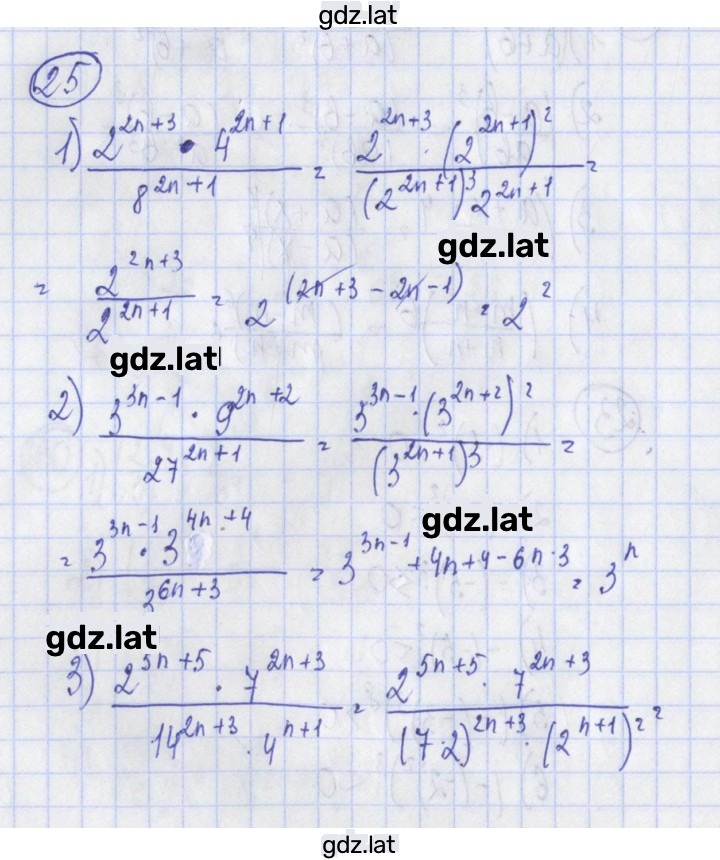 gdz.lat
25
1) (2^(2n+3) · 4^(2n+1)) / 8^(2n+1) = (2^(2n+3) · (2^(2n+1))^2) / ((2^(2n+1))^3 2^(2n+1)) =
gdz.lat
= 2^(2n+3) / 2^(2n+1) = 2^(2n+3-2n-1) = 2^2
gdz.lat
2) (3^(3n-1) · 9^(2n+2)) / 27^(2n+1) = (3^(3n-1) · (3^(2n+2))^2) / (3^(2n+1))^3 =
gdz.lat
= (3^(3n-1) · 3^(4n+4)) / 3^(6n+3) = 3^(3n-1+4n+4-6n·3) = 3^n
gdz.lat
3) (2^(5n+5) · 7^(2n+3)) / (14^(2n+3) · 4^(n+1)) = (2^(5n+5) · 7^(2n+3)) / ((7·2)^(2n+3) · (2^(n+1))^2) =
gdz.lat